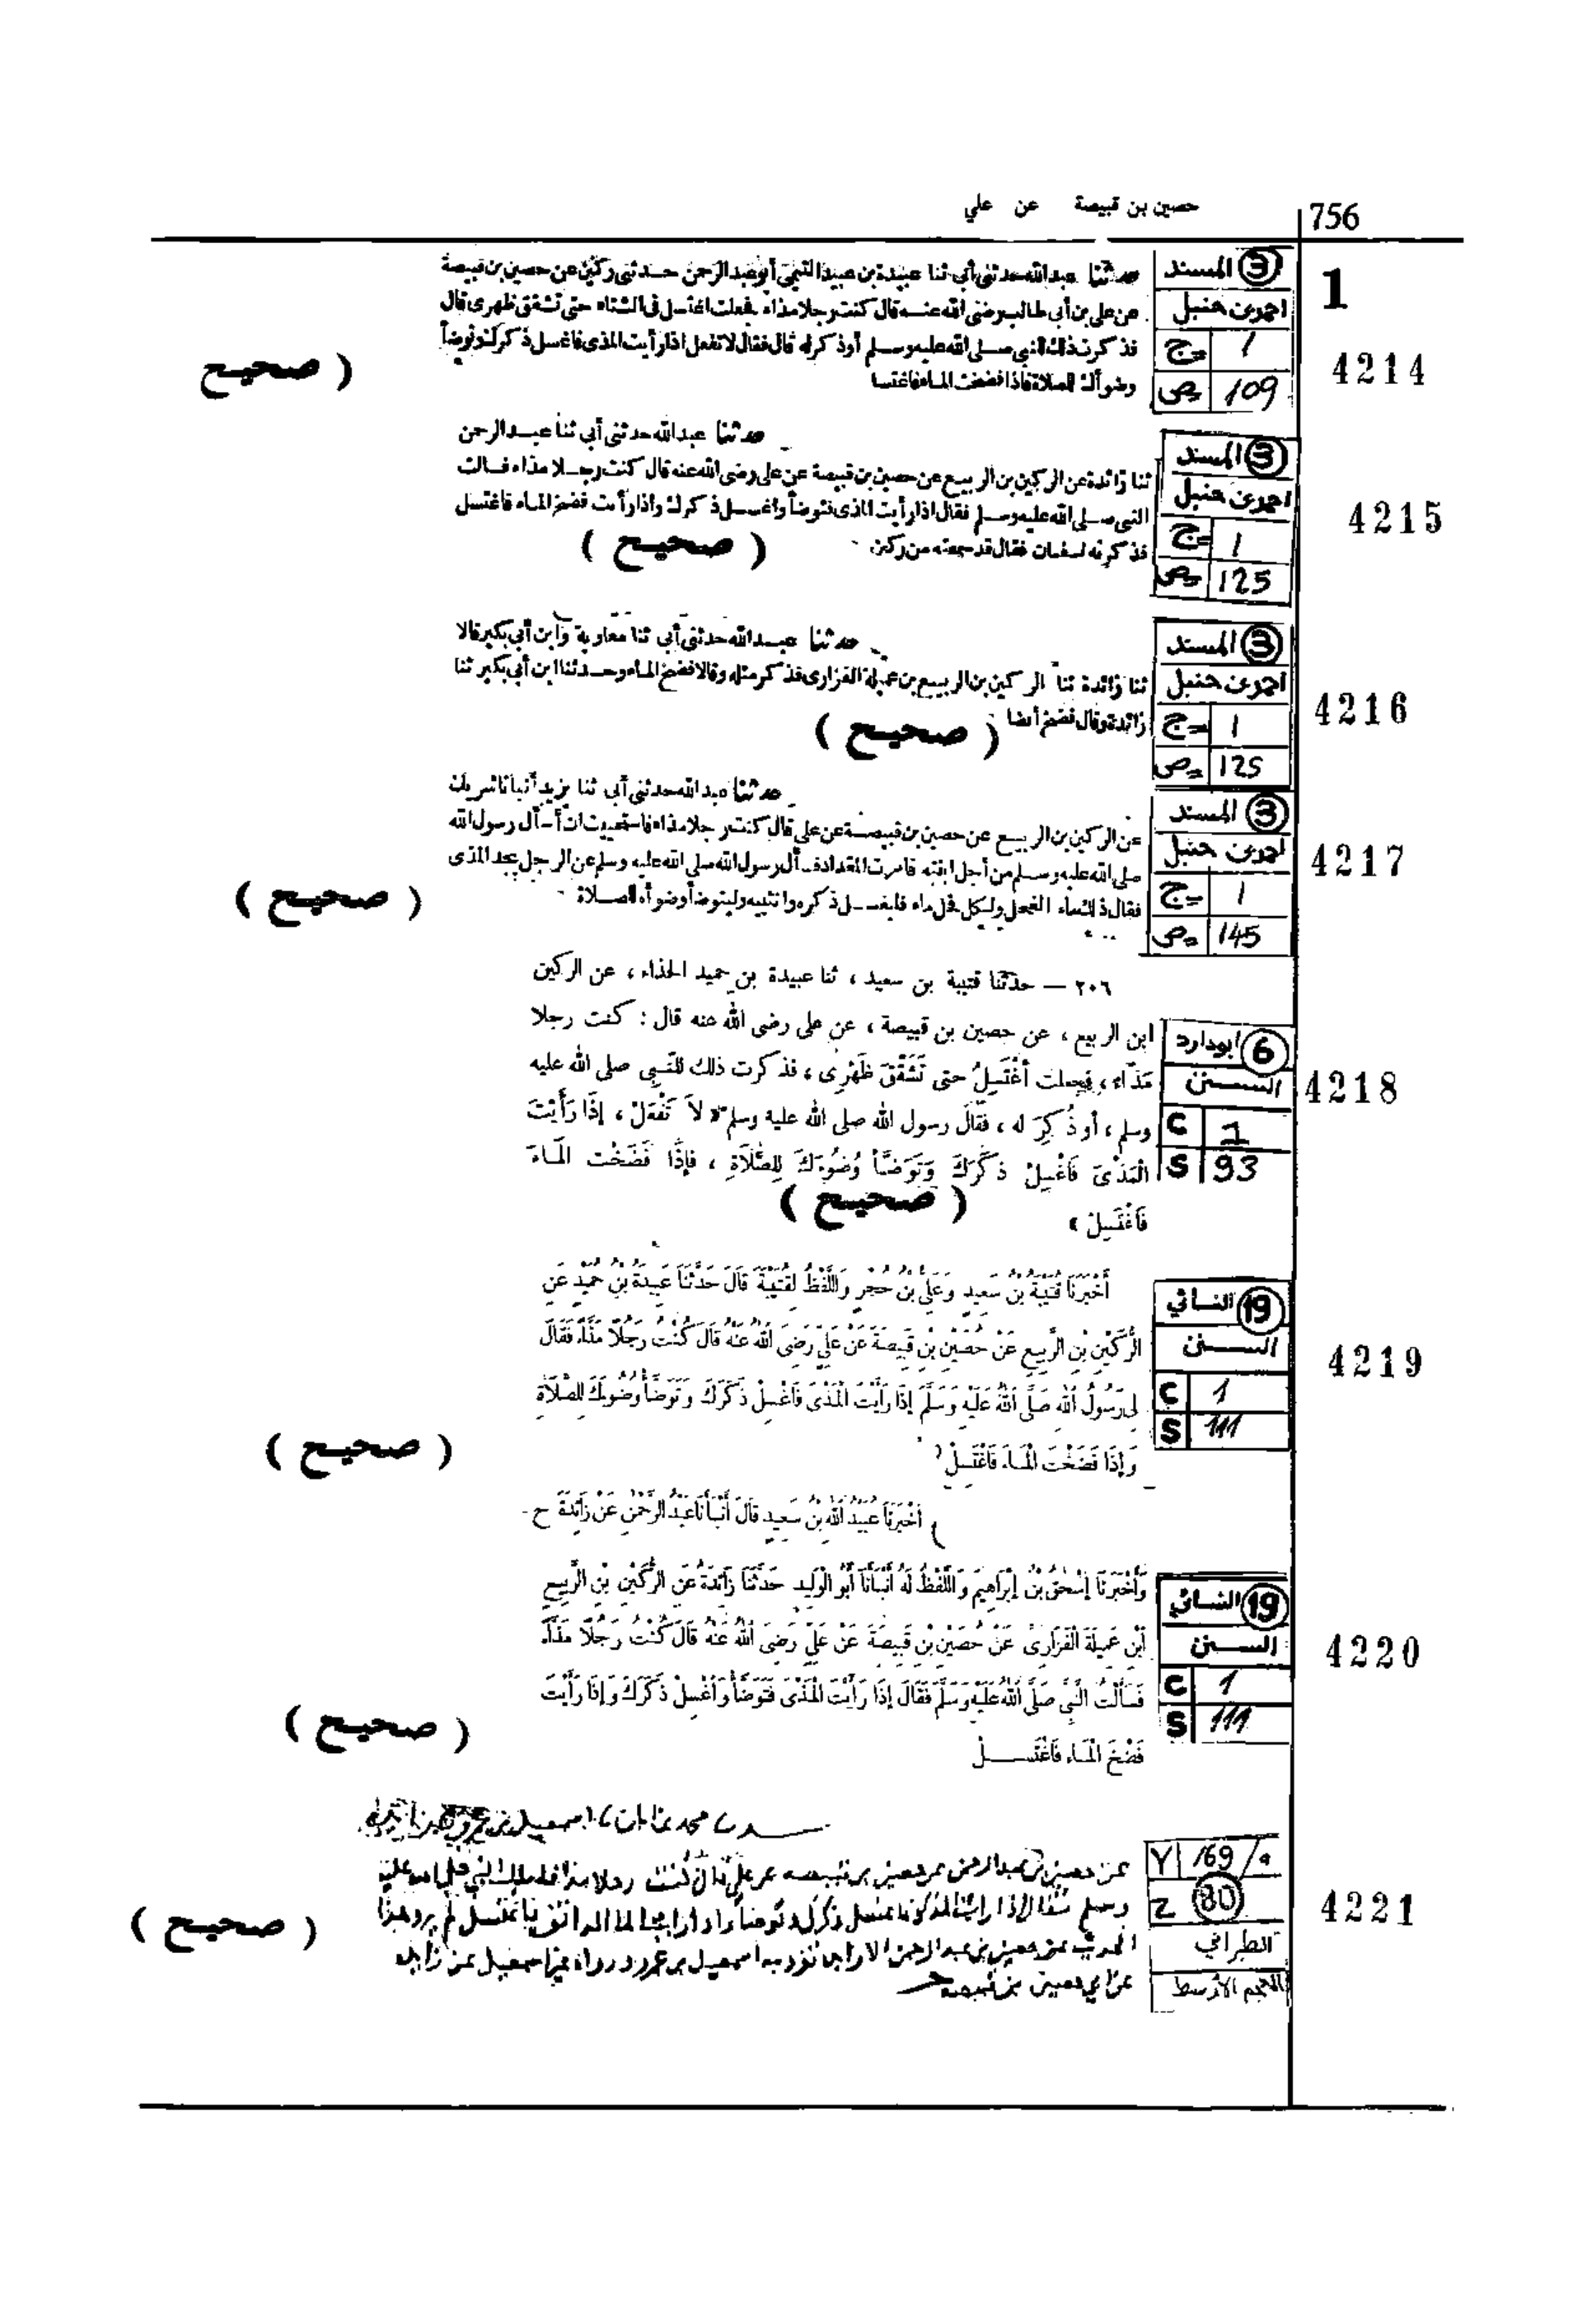 حصين بن قبيصة عن علي
756
1
3 المسند
احمد بن حنبل
ج 1
ص 109
4214
حدثنا عبد الله حدثني أبي ثنا عبيدة بن حميد التيمي أبو عبد الرحمن حدثني ركين عن حصين بن قبيصة
عن علي بن أبي طالب رضى الله عنه قال كنت رجلا مذاء فجعلت اغتسل في الشتاء حتى تشقق ظهرى قال
فذكرت ذلك للنبي صلى الله عليه وسلم أو ذكر له قال فقال لا تفعل اذا رأيت المذى فاغسل ذكرك وتوضأ
وضوأك للصلاة فاذا فضخت الماء فاغتسل
( صحيح )
3 المسند
احمد بن حنبل
ج 1
ص 125
4215
حدثنا عبد الله حدثني أبي ثنا عبد الرحمن
ثنا زائدة عن الركين بن الربيع عن حصين بن قبيصة عن على رضى الله عنه قال كنت رجلا مذاء فسالت
النبي صلى الله عليه وسلم فقال اذا رأيت المذى فتوضأ واغسل ذكرك واذا رأيت فضخ الماء فاغتسل
فذكرته لسفيان فقال قد سمعته من ركين
( صحيح )
3 المسند
احمد بن حنبل
ج 1
ص 125
4216
حدثنا عبد الله حدثني أبي ثنا معاوية وابن أبي بكير قالا
ثنا زائدة ثنا الركين بن الربيع بن عميلة الفزارى فذكر مثله وقالا فضخ الماء وحدثنا ابن أبي بكير ثنا
زائدة وقال فضخ أيضا
( صحيح )
3 المسند
احمد بن حنبل
ج 1
ص 145
4217
حدثنا عبد الله حدثني أبي ثنا يزيد أنبأنا شريك
عن الركين بن الربيع عن حصين بن قبيصة عن على قال كنت رجلا مذاء فاستحييت ان أسأل رسول الله
صلى الله عليه وسلم من أجل ابنته فامرت المقداد فسأل رسول الله صلى الله عليه وسلم عن الرجل يجد المذى
فقال ذلك ماء الفحل ولكل فحل ماء فليغسل ذكره وانثييه وليتوضأ وضوأه للصلاة
( صحيح )
6 ابو داود
السنن
C 1
S 93
4218
٢٠٦ — حدثنا قتيبة بن سعيد ، ثنا عبيدة بن حميد الحذاء ، عن الركين
ابن الربيع ، عن حصين بن قبيصة ، عن على رضى الله عنه قال : كنت رجلا
مَذّاء ، فجعلت أغْتَسِلُ حتى تَشَقَّقَ ظَهْرِى ، فذكرت ذلك للنَّبِى صلى الله عليه
وسلم ، أو ذُكِرَ له ، فقَالَ رسول الله صلى الله عليه وسلم « لاَ تَفْعَلْ ، إذَا رَأَيْتَ
المَذْىَ فَاغْسِلْ ذَكَرَكَ وَتَوَضَّأْ وُضُوءَكَ لِلصَّلَاةِ ، فَإذَا فَضَخْتَ المَاءَ
فَاغْتَسِلْ »
( صحيح )
19 النسائي
السنن
C 1
S 111
4219
أَخْبَرَنَا قُتَيْبَةُ بْنُ سَعِيدٍ وَعَلِىُّ بْنُ حُجْرٍ وَاللَّفْظُ لِقُتَيْبَةَ قَالَ حَدَّثَنَا عَبِيدَةُ بْنُ حُمَيْدٍ عَنِ
الرُّكَيْنِ بْنِ الرَّبِيعِ عَنْ حُصَيْنِ بْنِ قَبِيصَةَ عَنْ عَلِىٍّ رَضِىَ اللهُ عَنْهُ قَالَ كُنْتُ رَجُلًا مَذَّاءً فَقَالَ
لِى رَسُولُ اللهِ صَلَّى اللهُ عَلَيْهِ وَسَلَّمَ إِذَا رَأَيْتَ الْمَذْىَ فَاغْسِلْ ذَكَرَكَ وَتَوَضَّأْ وُضُوءَكَ لِلصَّلَاةِ
وَإِذَا فَضَخْتَ الْمَاءَ فَاغْتَسِلْ
( صحيح )
19 النسائي
السنن
C 1
S 111
4220
أَخْبَرَنَا عُبَيْدُ اللهِ بْنُ سَعِيدٍ قَالَ أَنْبَأَنَا عَبْدُ الرَّحْمٰنِ عَنْ زَائِدَةَ ح
وَأَخْبَرَنَا إِسْحٰقُ بْنُ إِبْرَاهِيمَ وَاللَّفْظُ لَهُ أَنْبَأَنَا أَبُو الْوَلِيدِ حَدَّثَنَا زَائِدَةُ عَنِ الرُّكَيْنِ بْنِ الرَّبِيعِ
ابْنِ عَمِيلَةَ الْفَزَارِىِّ عَنْ حُصَيْنِ بْنِ قَبِيصَةَ عَنْ عَلِىٍّ رَضِىَ اللهُ عَنْهُ قَالَ كُنْتُ رَجُلًا مَذَّاءً
فَسَأَلْتُ النَّبِىَّ صَلَّى اللهُ عَلَيْهِ وَسَلَّمَ فَقَالَ إِذَا رَأَيْتَ الْمَذْىَ فَتَوَضَّأْ وَاغْسِلْ ذَكَرَكَ وَإِذَا رَأَيْتَ
فَضْخَ الْمَاءِ فَاغْتَسِلْ
( صحيح )
Y 169/
Z 80
الطبراني
المعجم الأوسط
4221
محمد بن ابان اسمعيل بن عمرو
عن حصين بن عبد الرحمن عن حصين بن قبيصه عن علي قال كنت رجلا مذا فسالت النبي صلى الله عليه
وسلم فقال اذا رايت المذي فاغسل ذكرك وتوضا واذا رايت الماء الدافق فاغتسل لم يرو هذا
الحديث عن حصين بن عبد الرحمن الا زايده تفرد به اسمعيل بن عمرو ورواه غير اسمعيل عن زايده
عن ابي حصين عن حصين بن قبيصه
( صحيح )